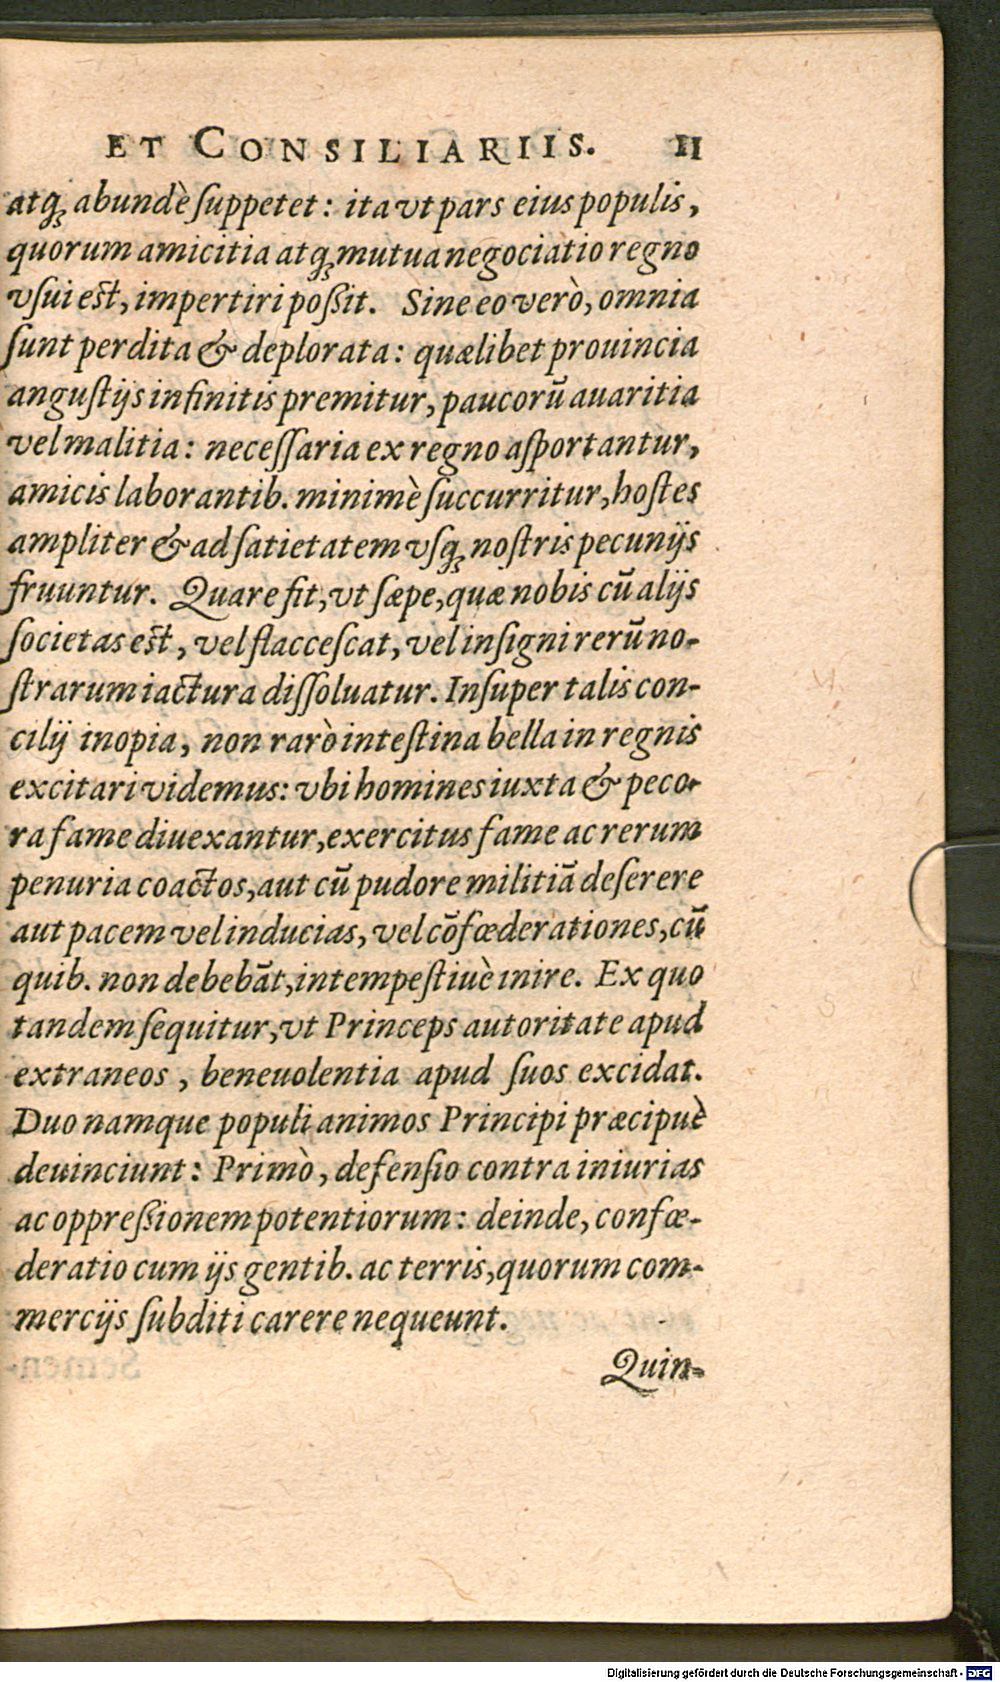 ET CONSILIARIIS. 11
atq́; abundè ſuppetet: ita vt pars eius populis,
quorum amicitia atq́; mutua negociatio regno
vſui eſt, impertiri poßit. Sine eo verò, omnia
ſunt perdita & deplorata: quælibet prouincia
anguſtijs infinitis premitur, paucorū auaritia
vel malitia: neceſſaria ex regno aſportantur,
amicis laborantib. minimè ſuccurritur, hoſtes
ampliter & ad ſatietatem vſq́; noſtris pecunijs
fruuntur. Quare fit, vt ſæpe, quæ nobis cū alijs
ſocietas eſt, vel flacceſcat, vel inſigni rerū no-
ſtrarum iactura diſſoluatur. Inſuper talis con-
cilij inopia, non rarò inteſtina bella in regnis
excitari videmus: vbi homines iuxta & peco-
ra fame diuexantur, exercitus fame ac rerum
penuria coactos, aut cū pudore militiā deſerere
aut pacem vel inducias, vel cōfœderationes, cū
quib. non debebāt, intempeſtiuè inire. Ex quo
tandem ſequitur, vt Princeps autoritate apud
extraneos, beneuolentia apud ſuos excidat.
Duo namque populi animos Principi præcipuè
deuinciunt: Primò, defenſio contra iniurias
ac oppreßionem potentiorum: deinde, confœ-
deratio cum ijs gentib. ac terris, quorum com-
mercijs ſubditi carere nequeunt.
Quin-
Digitalisierung gefördert durch die Deutsche Forschungsgemeinschaft - DFG